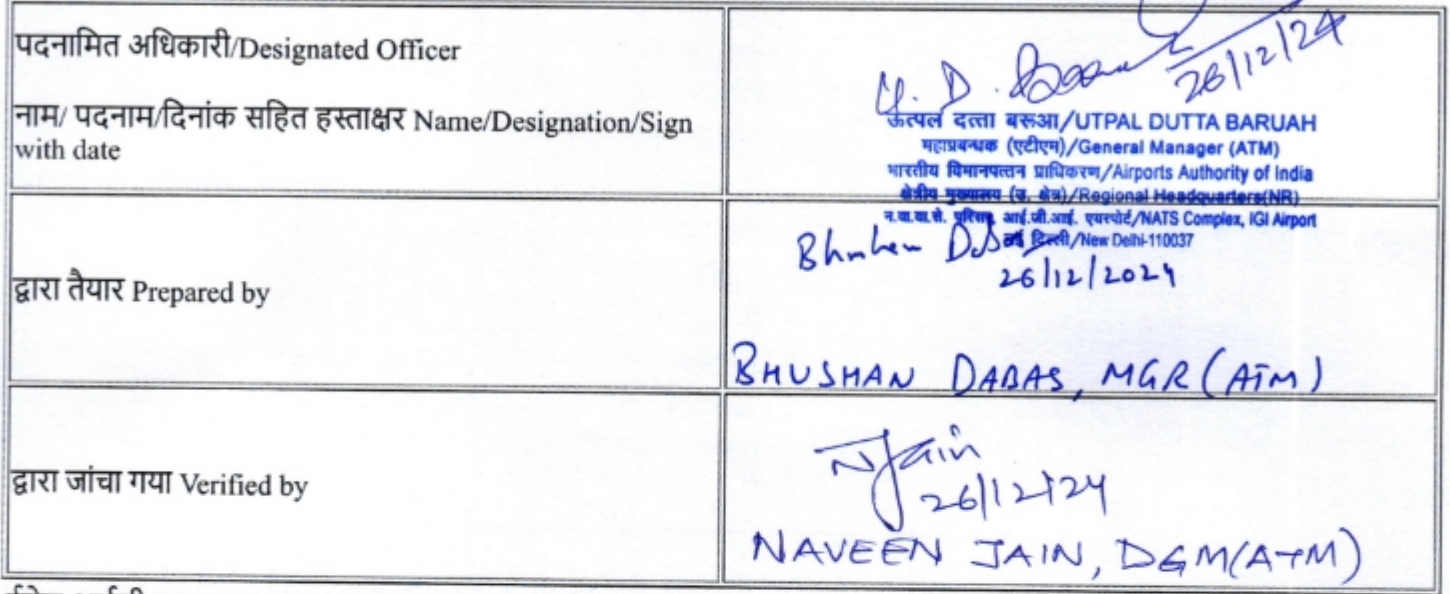 पदनामित अधिकारी/Designated Officer
नाम/ पदनाम/दिनांक सहित हस्ताक्षर Name/Designation/Sign
with date
26/12/24
उत्पल दत्ता बरूआ/UTPAL DUTTA BARUAH
महाप्रबन्धक (एटीएम)/General Manager (ATM)
भारतीय विमानपत्तन प्राधिकरण/Airports Authority of India
क्षेत्रीय मुख्यालय (उ. क्षेत्र)/Regional Headquarters(NR)
आई.जी.आई. एयरपोर्ट/NATS Complex, IGI Airport
नई दिल्ली/New Delhi-110037
द्वारा तैयार Prepared by
Bhushan
26/12/2024
BHUSHAN DABAS, MGR (ATM)
द्वारा जांचा गया Verified by
NJain
26/12/24
NAVEEN JAIN, DGM(ATM)